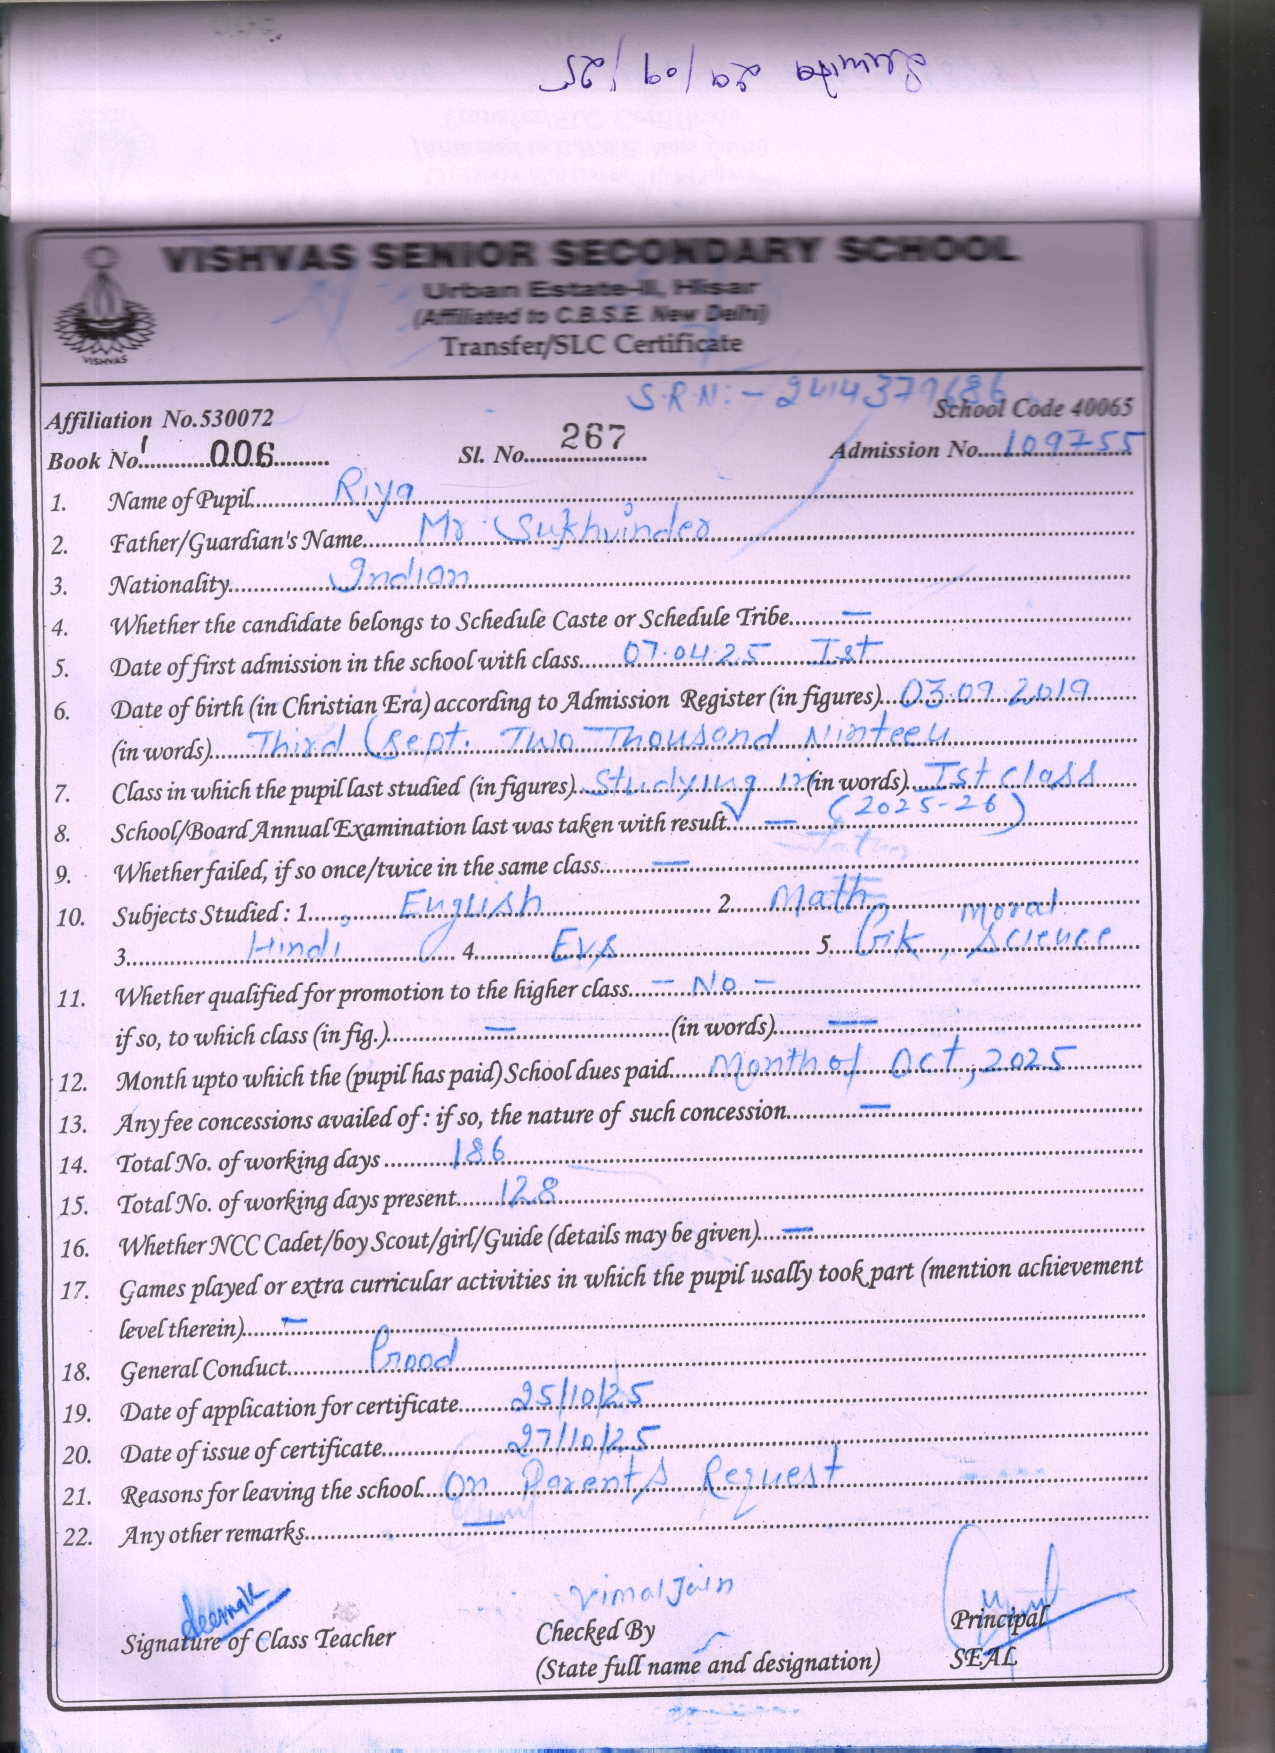 Sumita 29/09/25
VISHVAS SENIOR SECONDARY SCHOOL
Urban Estate-II, Hisar
(Affiliated to C.B.S.E. New Delhi)
Transfer/SLC Certificate
VISHVAS
S.R.N:- 2414379686
Affiliation No.530072 School Code 40065
Book No. 006 Sl. No. 267 Admission No. 109755
1. Name of Pupil Riya
2. Father/Guardian's Name Mr. Sukhvinder
3. Nationality Indian
4. Whether the candidate belongs to Schedule Caste or Schedule Tribe —
5. Date of first admission in the school with class 07.04.25 Ist
6. Date of birth (in Christian Era) according to Admission Register (in figures) 03.09.2019
(in words) Third Sept. Two Thousand Ninteen
7. Class in which the pupil last studied (in figures) Studying in (in words) Ist class
8. School/Board Annual Examination last was taken with result — (2025-26)
9. Whether failed, if so once/twice in the same class —
10. Subjects Studied : 1. English 2. Math
3. Hindi 4. EVS 5. Gk, Moral Science
11. Whether qualified for promotion to the higher class - No -
if so, to which class (in fig.) — (in words) —
12. Month upto which the (pupil has paid) School dues paid Month of Oct, 2025
13. Any fee concessions availed of : if so, the nature of such concession —
14. Total No. of working days 186
15. Total No. of working days present 128
16. Whether NCC Cadet/boy Scout/girl/Guide (details may be given) —
17. Games played or extra curricular activities in which the pupil usally took part (mention achievement
level therein) —
18. General Conduct Good
19. Date of application for certificate 25/10/25
20. Date of issue of certificate 27/10/25
21. Reasons for leaving the school On Parent's Request
22. Any other remarks —
Vimal Jain
Signature of Class Teacher Checked By Principal
(State full name and designation) SEAL